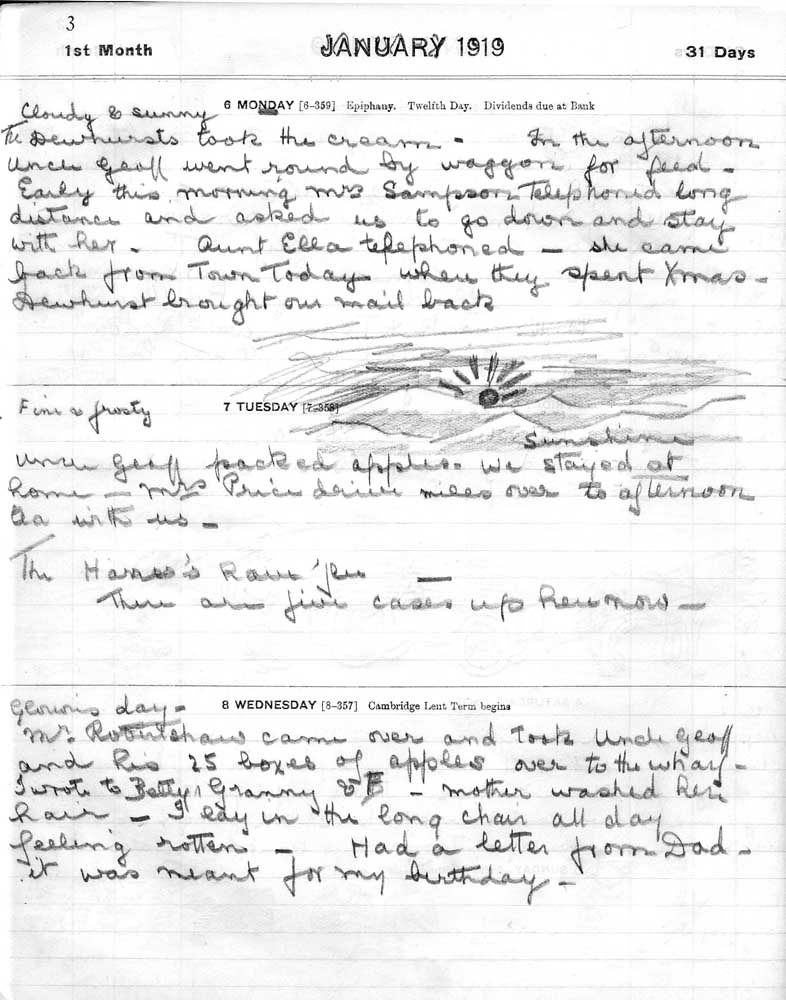 3
1st Month JANUARY 1919 31 Days
6 MONDAY [6-359] Epiphany. Twelfth Day. Dividends due at Bank
Cloudy & sunny
The Dewhursts took the cream - In the afternoon
Uncle Geoff went round by waggon for feed -
Early this morning Mrs Sampson Telephoned long
distance and asked us to go down and stay
with her. Aunt Ella telephoned - she came
back from Town Today when they spent Xmas -
Dewhurst brought our mail back
7 TUESDAY [7-358]
Fine & frosty
Sunshine
Uncle Geoff packed apples. We stayed at
home - Mrs Price drive miles over to afternoon
tea with us -
The 's have 'flu -
There are five cases up here now -
8 WEDNESDAY [8-357] Cambridge Lent Term begins
Glorious day -
Mr. Robertshaw came over and Took Uncle Geoff
and his 25 boxes of apples over to the wharf -
I wrote to Betty, Granny & E - mother washed her
hair - I lay in the long chair all day
feeling rotten - Had a letter from Dad -
it was meant for my birthday -